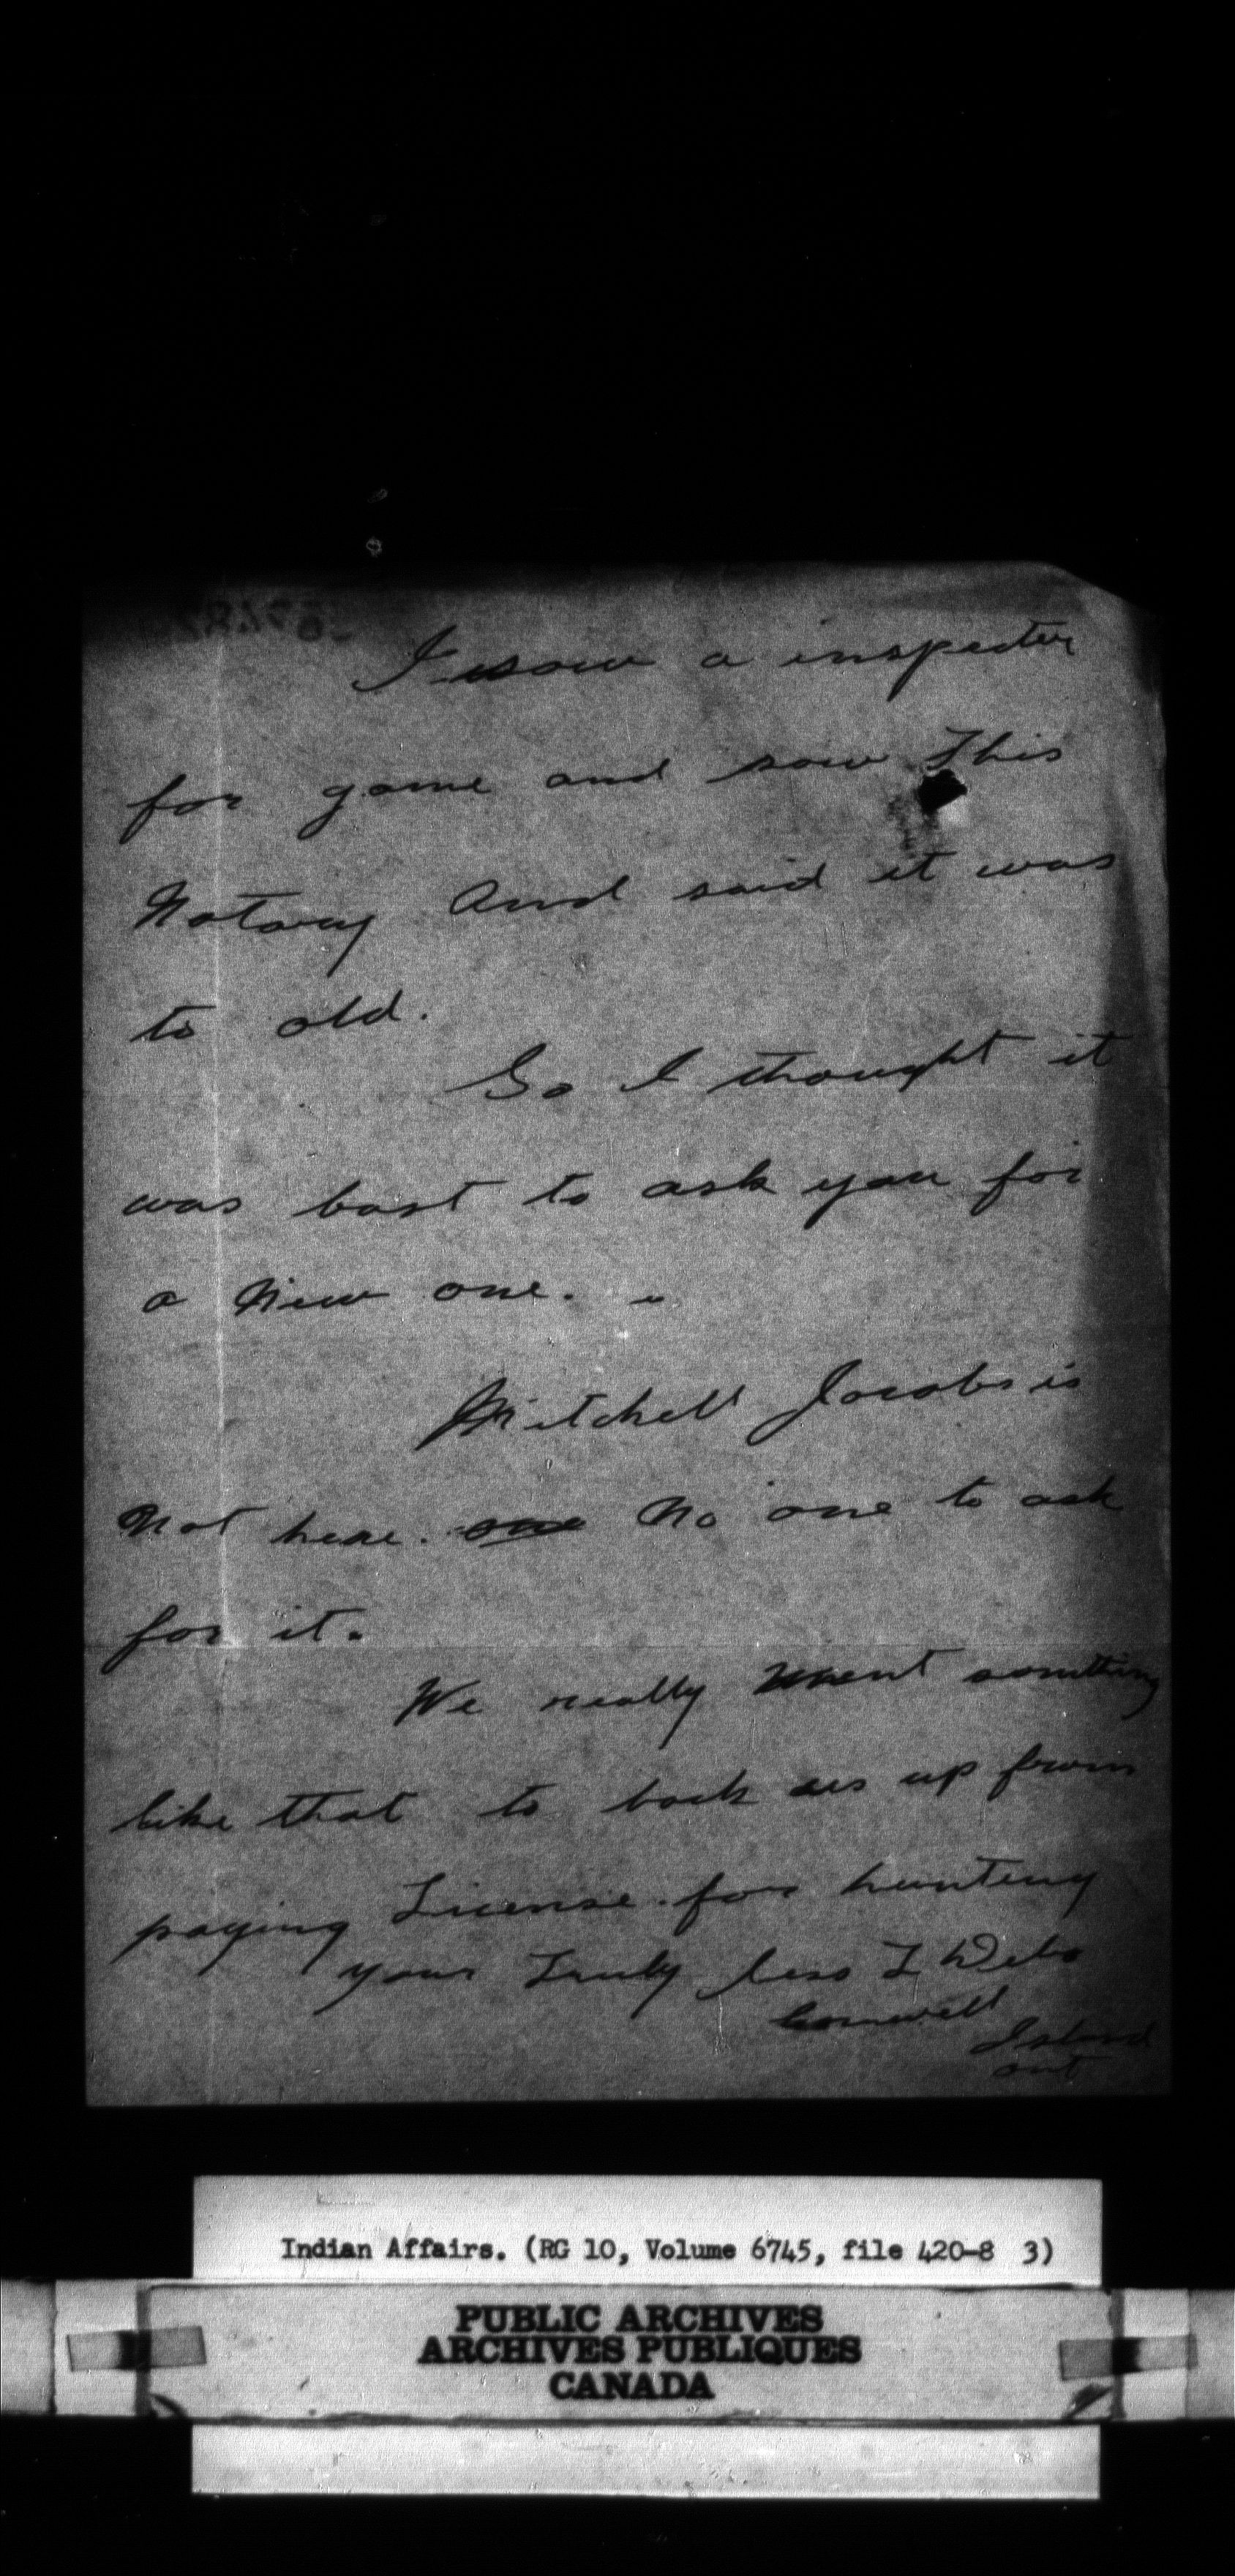 I saw a inspecter
for game and saw This
Notary And said it was
to old.
So I thought it
was bast to ask you for
a New one.
Mitchell Jacobs is
Not here. No one to ask
for it.
We really want somthing
like that to back us up from
paying License for hunting
your Truly
Cornwall
Island
ont
Indian Affairs. (RG 10, Volume 6745, file 420-8 3)
PUBLIC ARCHIVES
ARCHIVES PUBLIQUES
CANADA